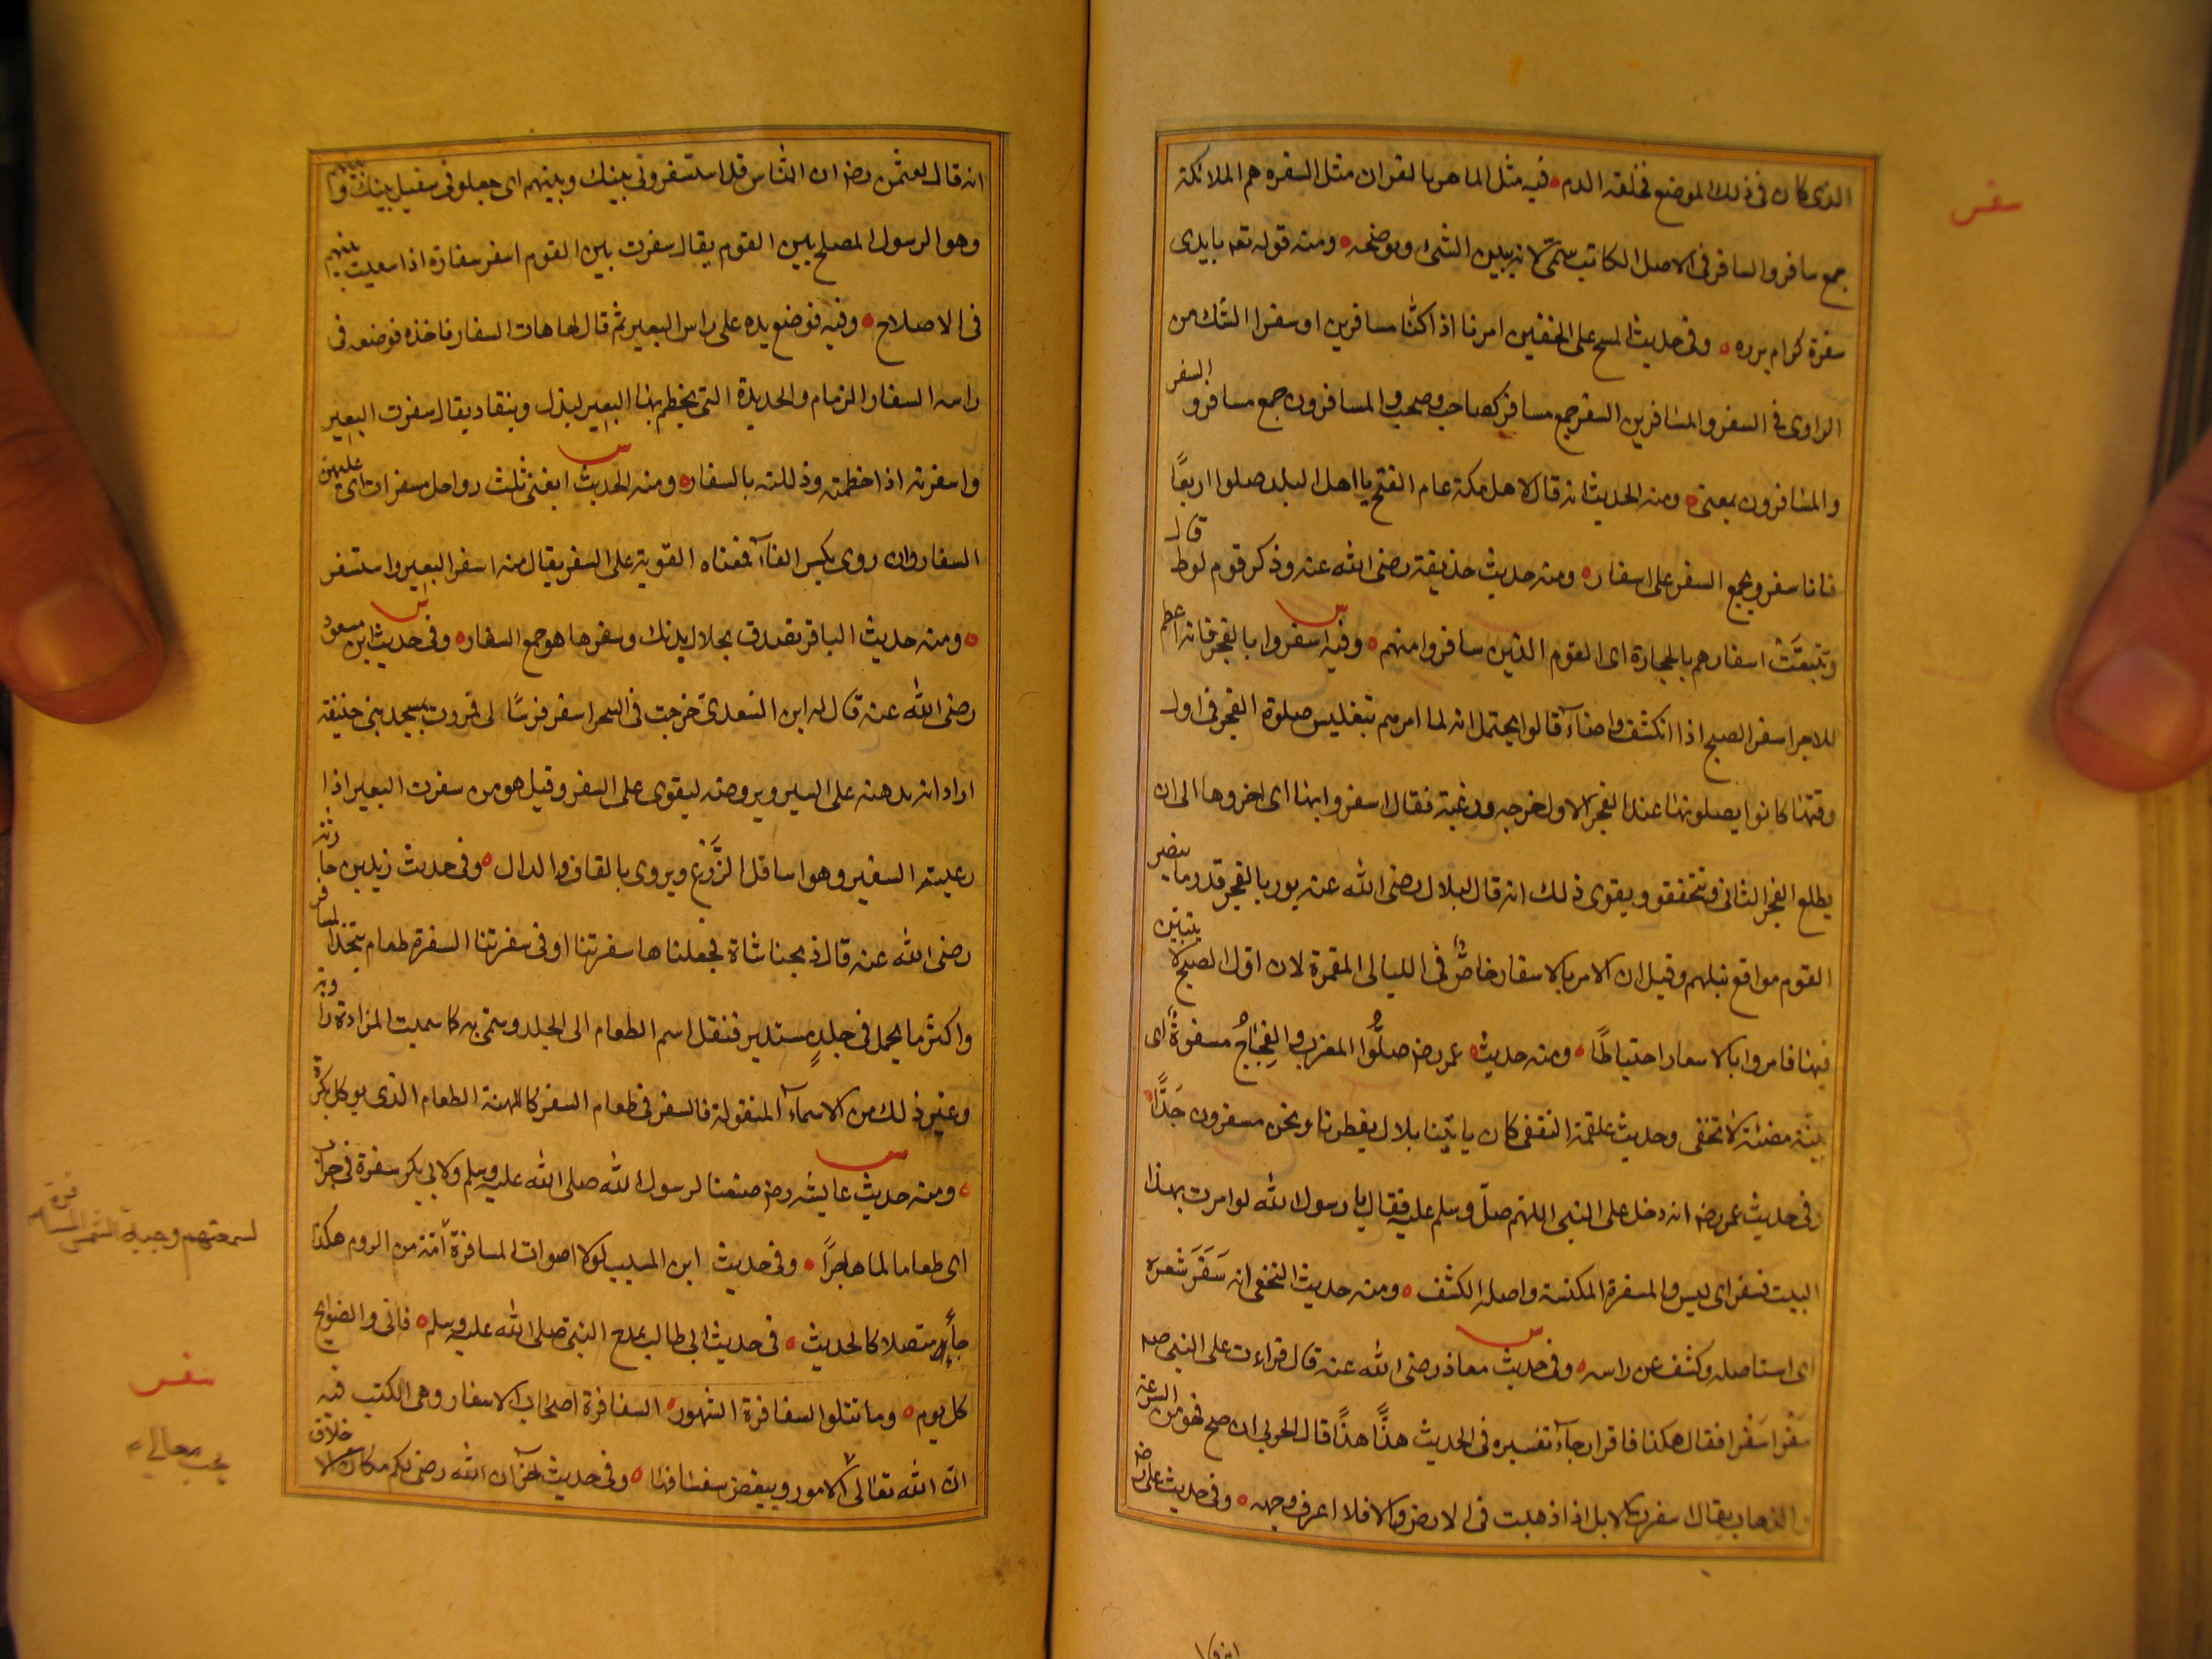 سفر
الذى كان فى ذلك الموضع فخلفه الدم فيه مثل الماهر بالقران مثل السفره هم الملائكة
جمع سافر والسافر فى الاصل الكاتب سمّى لانه يبين الشئ ويوضحه ومنه قوله تعم بايدى
سفرة كرام برره وفى حديث المسح على الخفين امرنا اذا كنّا مسافرين او سفرا الشك من
الراوى فى السفر والمسافرين السفر جمع مسافر كصاحب وصحب والمسافرون جمع مسافر و السفر
والمسافرون بمعنى ومنه الحديث انه قال لاهل مكة عام الفتح يا اهل البلد صلوا اربعًا
فانا سفر ويجمع السفر على اسفار ومنه حديث حذيفة رضى الله عنه وذكر قوم لوط قال
وتتبعّت اسفارهم بالحجارة اى القوم الذين سافروا منهم وفيه اسفروا بالفجر فانه اعظم
للاجر اسفر الصبح اذا انكشف واضاء قالوا يحتمل انه لما امرهم بتغليس صلوة الفجر فى اول
وقتها كانوا يصلونها عند الفجر الاول حرصه ورغبة فقال اسفروا بها اى اخروها الى ان
يطلع الفجر الثانى وتتحققو ويقوى ذلك انه قال لبلال رضى الله عنه يور بالفجر قدر ما يبصر
القوم مواقع نبلهم وقيل ان الامر بالاسفار خاصٌّ فى الليالى المقمرة لان اوّل الصبح لا يتبيّن
فيها فامروا بالاسعار احتياطًا ومنه حديث عمر رضه صلُّوا المغرب والفِجَاجُ مسفرةٌ اى
بيّنة مضئة لا تخفى وحديث علقمة الثقفى كان ياتينا بلال يفطرنا ونحن مسفرون جَدًّا
وفى حديث عمر رضه انه دخل على النبى اللهم صل وسلم عليه فقال يا رسول الله لو امرت بهذا
البيت فسفر اى ليس والمسفرة المكنسة واصله الكشف ومنه حديث النخعى انه سَفَرَ شعره
اى استاصله وكشف عن راسه وفى حديث معاذ رضى الله عنه قال قراءت على النبى صم
سَفْرا سَفْرا فقال هكذا فاقرا جاء تفسيره فى الحديث هذًّا هذًّا قال الحربى ان صح فهو من السرعة
والذهاب يقال اسفرت الابل اذا ذهبت فى الارض والا فلا اعرف وجهه وفى حديث على رضه
انه قال لعثمن رضه ان الناس قد استسفرونى بينك وبينهم اى جعلونى سفيل بينك وبينهم
وهو الرسول المصلح بين القوم يقال سفرت بين القوم اسفر سفارة اذا سعيت بينهم
فى الاصلاح وفيه فوضع يده على راس البعير ثم قال لها هات السفار فاخذه فوضعه فى
راسه السفار الزمام والحديدة التى يخطم بها البعير ليذل وينقاد يقال سفرت البعير
واسفرته اذا خطمته وذللته بالسفار ومنه الحديث ابغنى ثلث رواحل مسفرات اى عليهن
السفار وان روى بكسر الفاء فمعناه القوية على السفر يقال منه اسفر البعير واستسفر
ومنه حديث الباقر تصدق بجلال بدنك وسفرها هو جمع السفار وفى حديث ابن مسعود
رضى الله عنه قال له ابن السعدى خرجت فى السحر اسفر فرسًا لى فمررت بمسجد بنى حنيفة
اراد انه يدهنه على السير ويروضه ليقوى على السفر وقيل هو من سفرت البعير اذا
رعيته السفير وهو اسافل الزَّرْع ويروى بالقاف والدال وفى حديث زيد بن حارثة
رضى الله عنه قال ذبحنا شاة فجعلناها سفرتنا او فى سفرتنا السفرة طعام يتخذ المسافر
واكثر ما يحمل فى جلدٍ مستدير فنقل اسم الطعام الى الجلد وسمّى به كا سميت المزادة راوية
وغير ذلك من الاسماء المنقولة فالسفر فى طعام السفر كاللهنة الطعام الذى يوكل بكرة
ومنه حديث عايشه رضه صنعنا لرسول الله صلى الله عليه وسلم ولابى بكر سفرة فى جراب
اى طعاما لما هاجرًا وفى حديث ابن المسيب لولا اصوات المسافرة آمنة من الروم هكذا
لسمعتهم وجبة الشمس المسافرة
جاء متصلا كالحديث فى حديث ابى طالب يمدح النبى صلى الله عليه وسلم فانى والضوابح
سفسر
كل يوم وما تتلوا السفافرة الشهور السفافرة اصحاب الاسفار وهى الكتب فيه
يحب معالى
ان الله تعالى الامور ويبغض سفسافها وفى حديث آخر ان الله رضى لكم مكارم الاخلاق